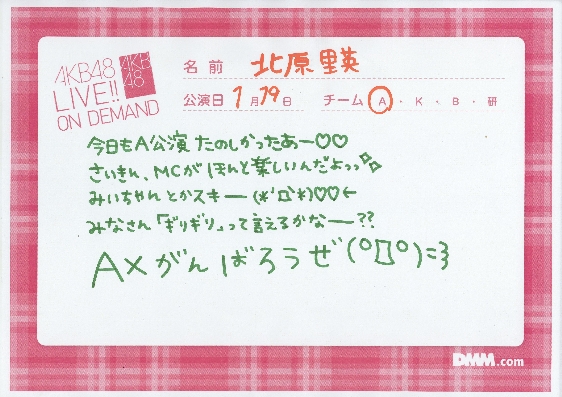 AKB48
LIVE!!
ON DEMAND
AKB
48
名前 北原里英
公演日 1月19日 チーム A・K・B・研
今日もA公演 たのしかったあー♡♡
さいきん、MCが ほんと楽しいんだよっっ
みいちゃんとかスキー(*´ロ`*)♡♡←
みなさん「ギリギリ」って言えるかなー??
AXがんばろうぜ(°Д°)=3
DMM.com